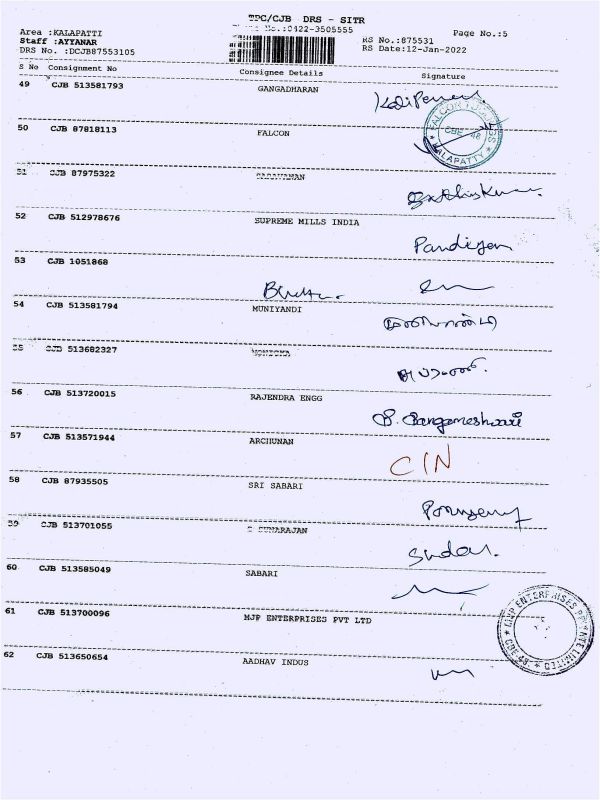 TPC/CJB DRS - SITR
Area :KALAPATTI No.:0422-3505555 Page No.:5
Staff :AYYANAR RS No.:875531
DRS No. :DCJB87553105 RS Date:12-Jan-2022
S No Consignment No Consignee Details Signature
49 CJB 513581793 GANGADHARAN
50 CJB 87818113 FALCON
KALAPATTY
51 CJB 87975322
52 CJB 512978676 SUPREME MILLS INDIA
Pandiyan
53 CJB 1051868
54 CJB 513581794 MUNIYANDI
55 CJB 513682327
56 CJB 513720015 RAJENDRA ENGG
57 CJB 513571944 ARCHUNAN
CIN
58 CJB 87935505 SRI SABARI
59 CJB 513701055
60 CJB 513585049 SABARI
61 CJB 513700096 MJP ENTERPRISES PVT LTD
MJP ENTERPRISES PRIVATE LIMITED
CBE-48
62 CJB 513650654 AADHAV INDUS